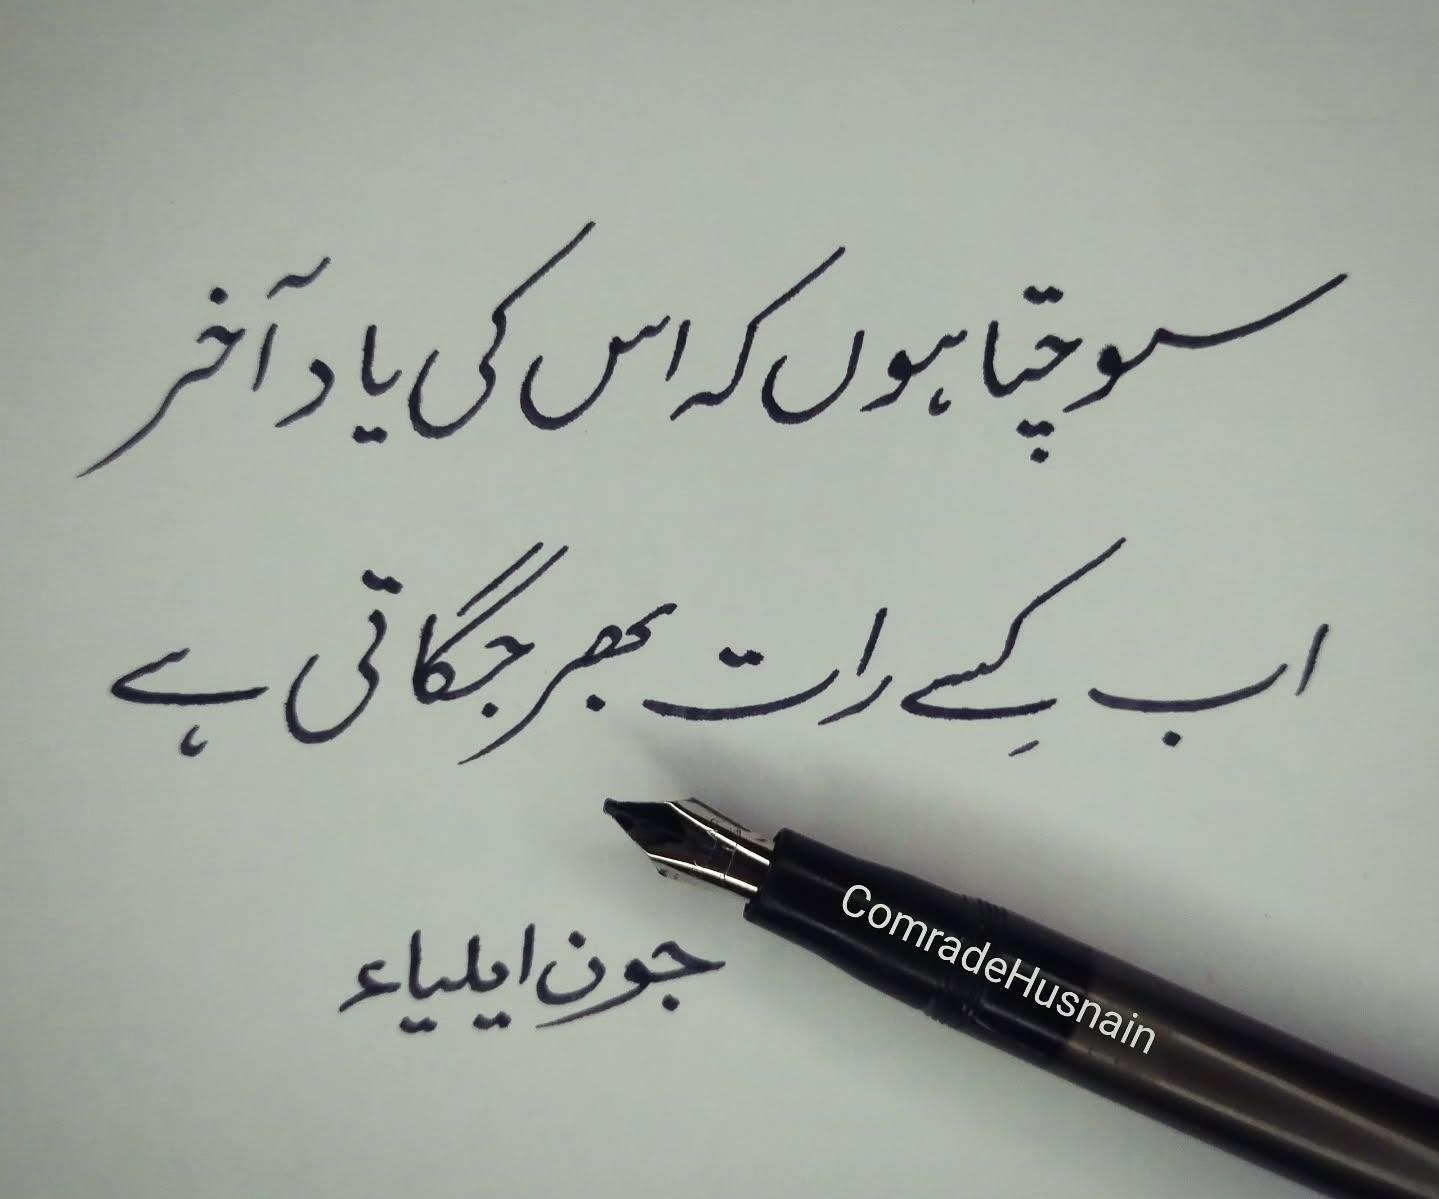 سوچتا ہوں کہ اس کی یاد آخر
اب کِسے رات بھر جگاتی ہے
جون ایلیاء
ComradeHusnain